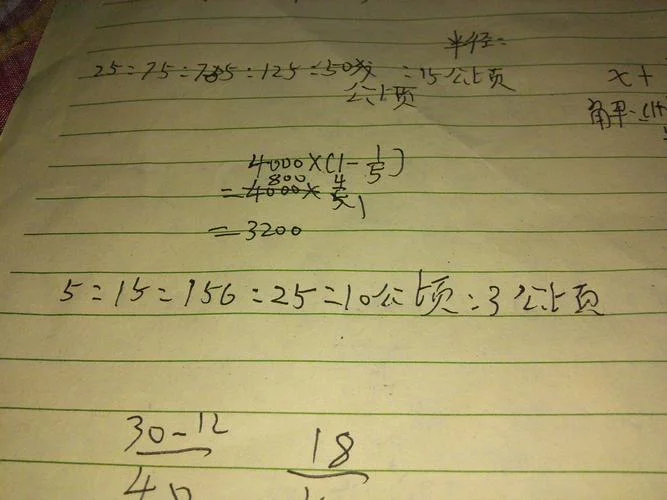 半径:
25=75=785=125=50 =15公顷
公顷
x+
4000×(1-1/5)
800 4
=4000×4/5 1
=3200
5=15=156=25=10公顷:3公顷
30-12 18
40